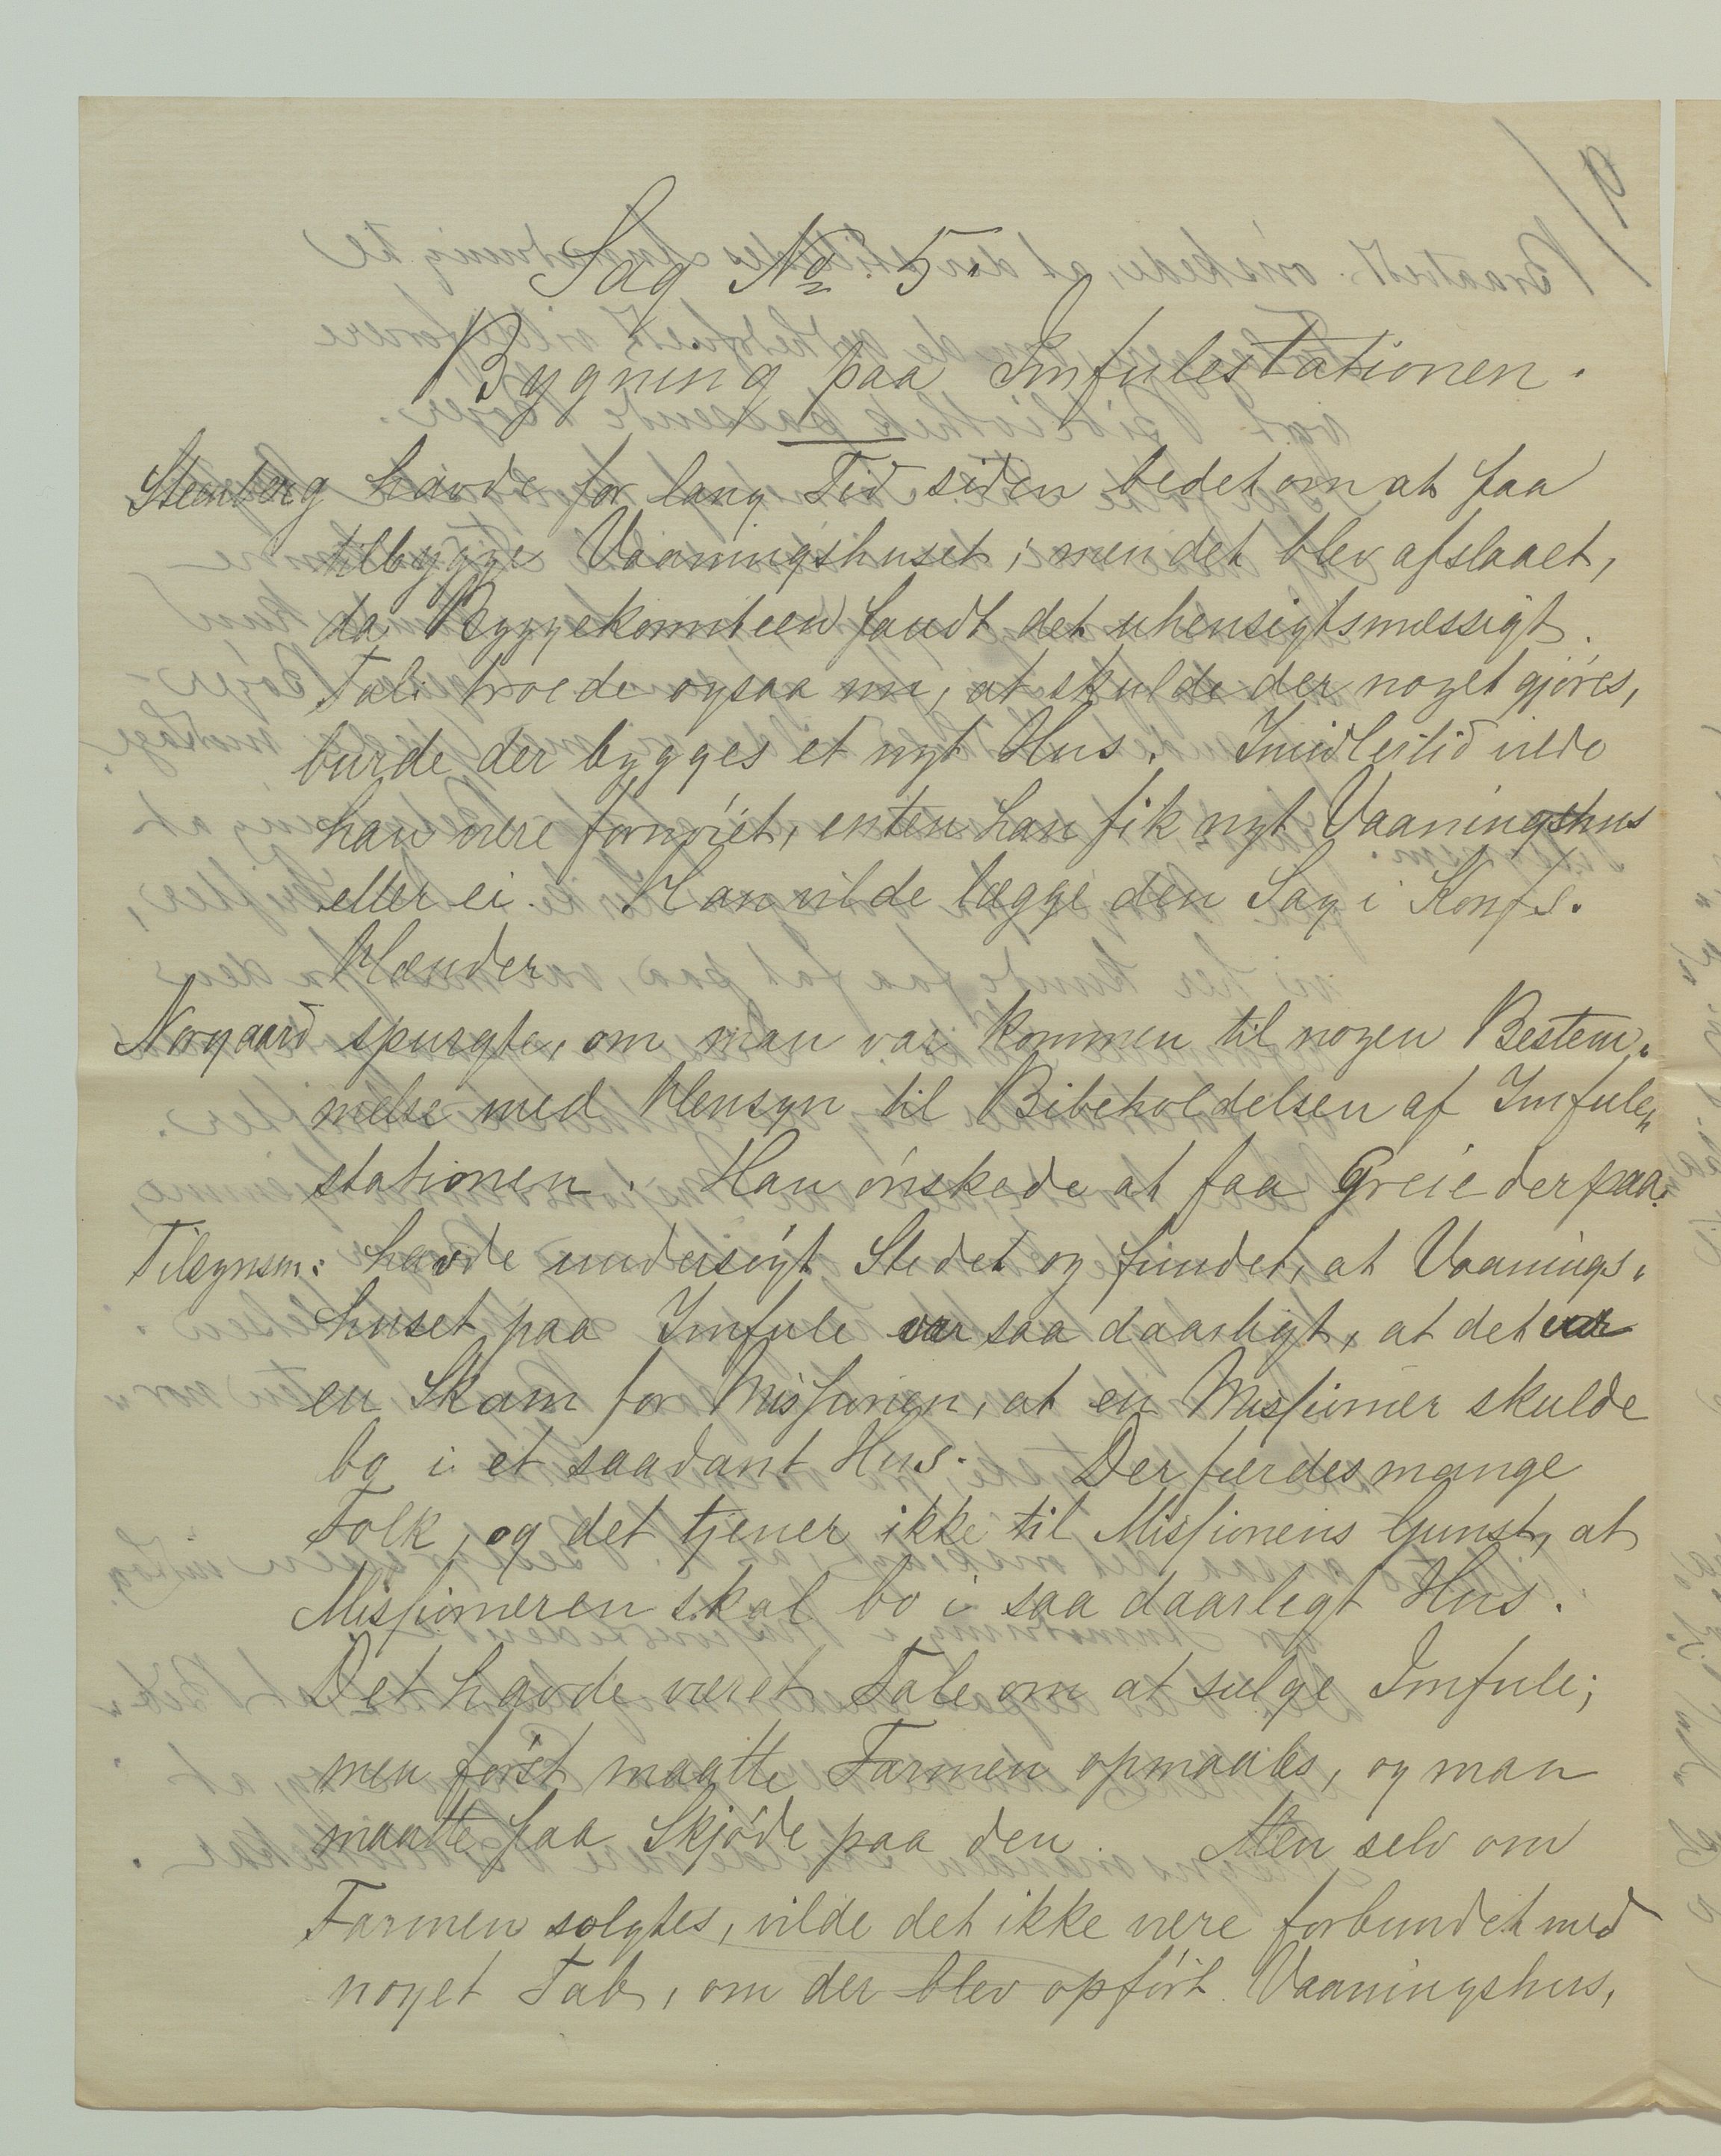 Sag No 5.
Bygning paa Imfulestationen.
Steenberg havde for lang Tid siden bedet om at faa
tilbygge Vaaningshuset; men det blev afslaaet,
da Byggekomiteen fandt det uhensigtsmæssigt.
Tal. troede ogsaa nu, at skulde der noget gjöres,
burde der bygges et nyt Hus. Imidlertid vilde
han være fornöiet, enten han fik nyt Vaaningshus
eller ei. Han vilde lægge den Sag i Konfs.
Hænder
Norgaard spurgte, om man var kommen til nogen Bestem-
melse med Hensyn til Bibeholdelsen af Imfule-
stationen. Han önskede at faa Greie derpaa.
Tilsynsm: havde undersögt Stedet og fundet, at Vaanings-
huset paa Imfule var saa daarligt, at det var
en Skam for Missionen, at en Missionær skulde
bo i et saadant Hus. Der færdes mange
Folk, og det tjener ikke til Missionens Gunst, at
Missionæren skal bo i saa daarligt Hus.
Det havde været Tale om at sælge Imfule;
men först maatte Farmen opmaales, og man
maatte faa Skjöde paa den. Men selv om
Farmen solgtes, vilde det ikke være forbundet med
noget Tab, om der blev opfört Vaaningshus,